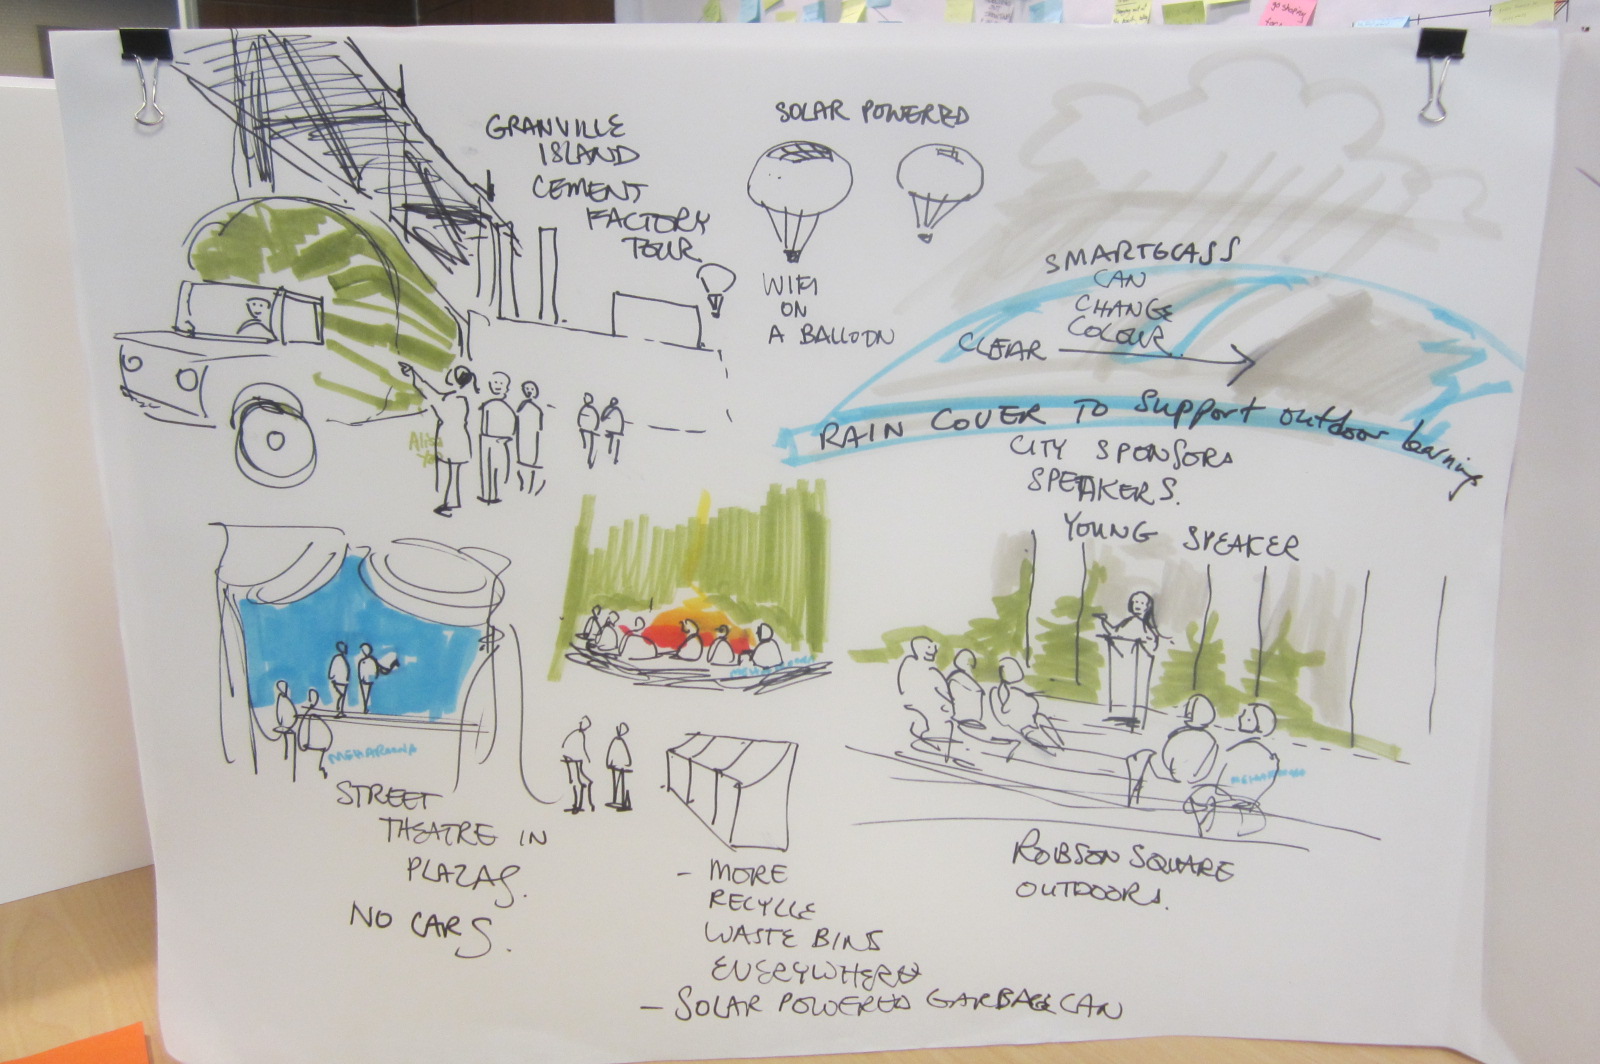 GRANVILLE
ISLAND
CEMENT
FACTORY
TOUR
SOLAR POWERED
WIFI
ON
A BALLOON
SMARTGLASS
CAN
CHANGE
COLOUR
CLEAR
RAIN COVER TO Support outdoor learning
CITY SPONSORS
SPEAKERS.
YOUNG SPEAKER
STREET
THEATRE IN
PLAZAS.
NO CARS.
- MORE
RECYCLE
WASTE BINS
EVERYWHERE
- SOLAR POWERED GARBAGE CAN
ROBSON SQUARE
OUTDOORS.
go shopping